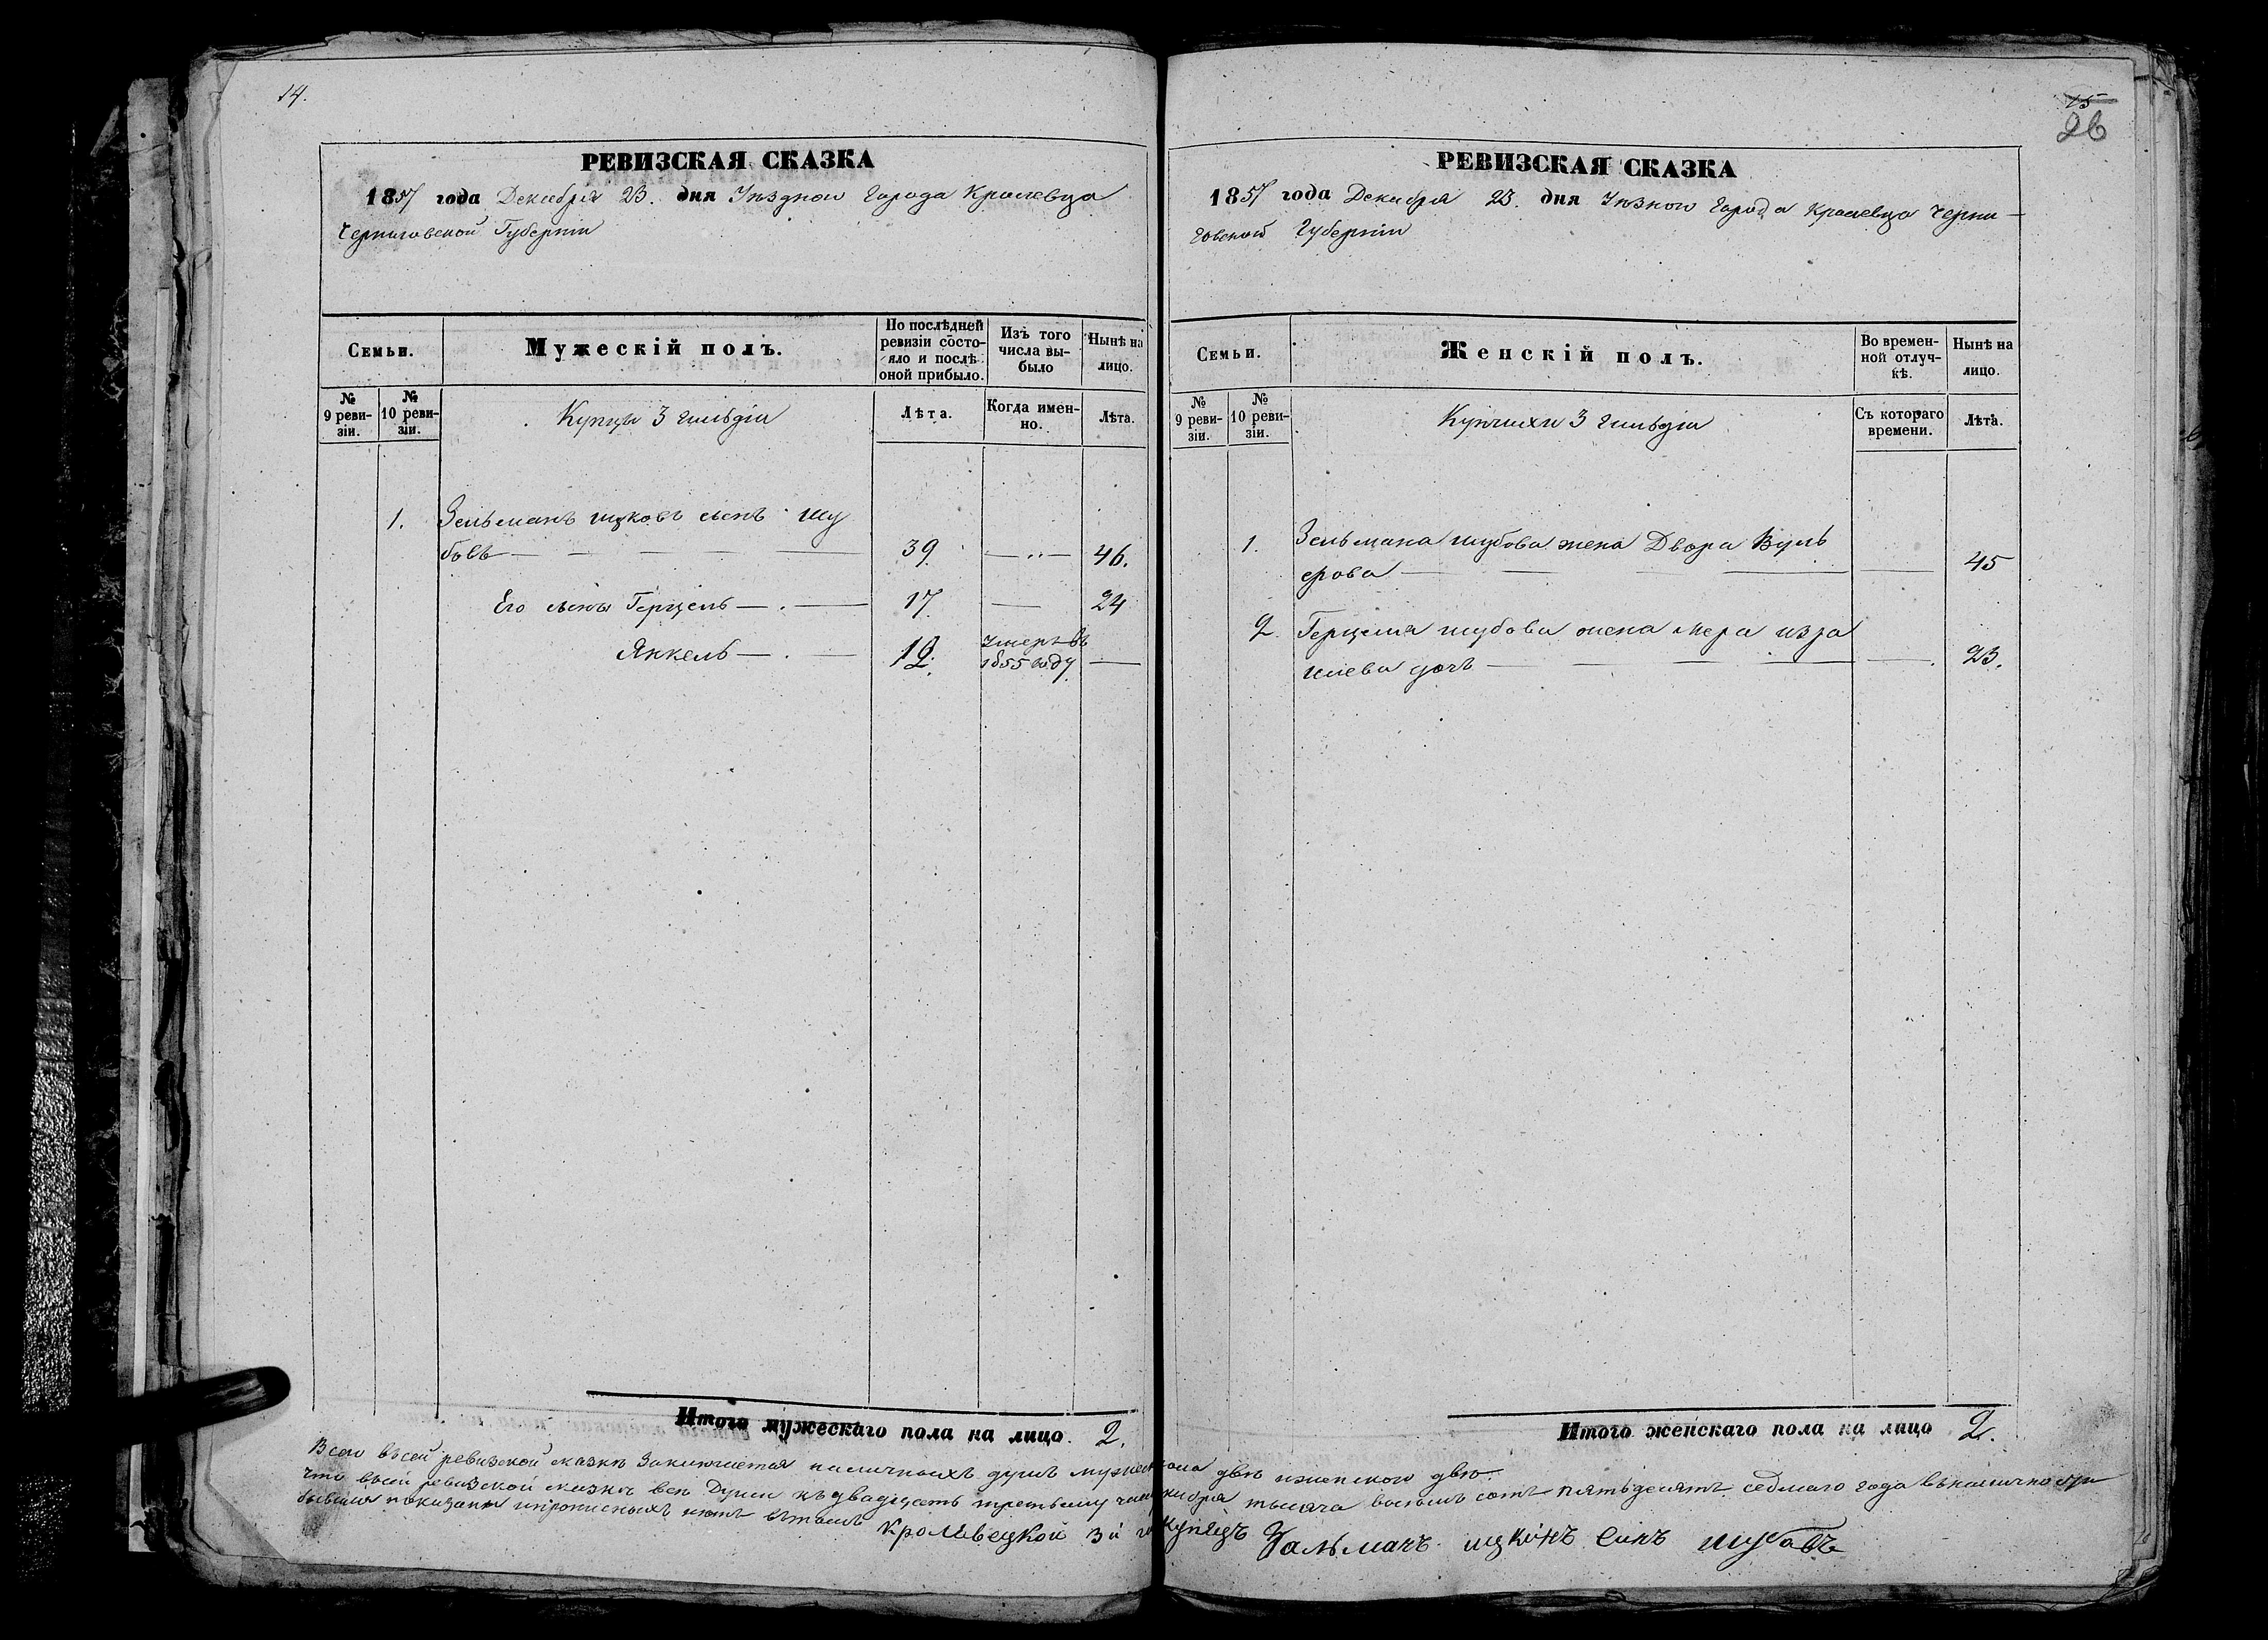 14.
РЕВИЗСКАЯ СКАЗКА
1857 года Декабря 23. дня Уѣзднои Города Кролевца
Черниговской Губерніи
Семьи.
Мужескій полъ.
По послѣдней ревизіи состояло и послѣ оной прибыло.
Изъ того числа выбыло
Нынѣ на лицо.
№ 9 ревизіи.
№ 10 ревизіи.
Купцы 3 гильдіи
Лѣта.
Когда именно.
Лѣта.
1. Зельманъ ицковъ сынъ Шу
бовъ — 39. —„— 46.
Его сыны Герцель — 17. — 24
Янкель — 12. умеръ въ
1855 году —
Итого мужескаго пола на лицо. 2.
15
26
РЕВИЗСКАЯ СКАЗКА
1857 года Декабря 23. дня Уѣзнои Города Кролевца Черни—
говской Губерніи
Семьи.
Женскій полъ.
Во временной отлучкѣ.
Нынѣ на лицо.
№ 9 ревизіи.
№ 10 ревизіи.
Купчихи 3 гильдіи
Съ котораго времени.
Лѣта.
1. Зельмана шубова жена Двора Вуль
фова — — 45
2. Герцеля шубова жена Мера изра
илева дочь — — 23.
Итого женскаго пола на лицо 2.
Всего въсей ревизской сказкѣ Заключается наличныхъ душъ мужеска пола двѣ иженского двѣ.
что въсей ревизской сказкѣ всѣ Души къ двадцать третьему числу декабря тысяча восемь сотъ пятьдесятъ седмаго года въналичности
бывшия показаны ипрописныхъ нетъ вътомъ Кролевецкой 3й г. Купецъ Залманъ ицковъ синъ шубовъ